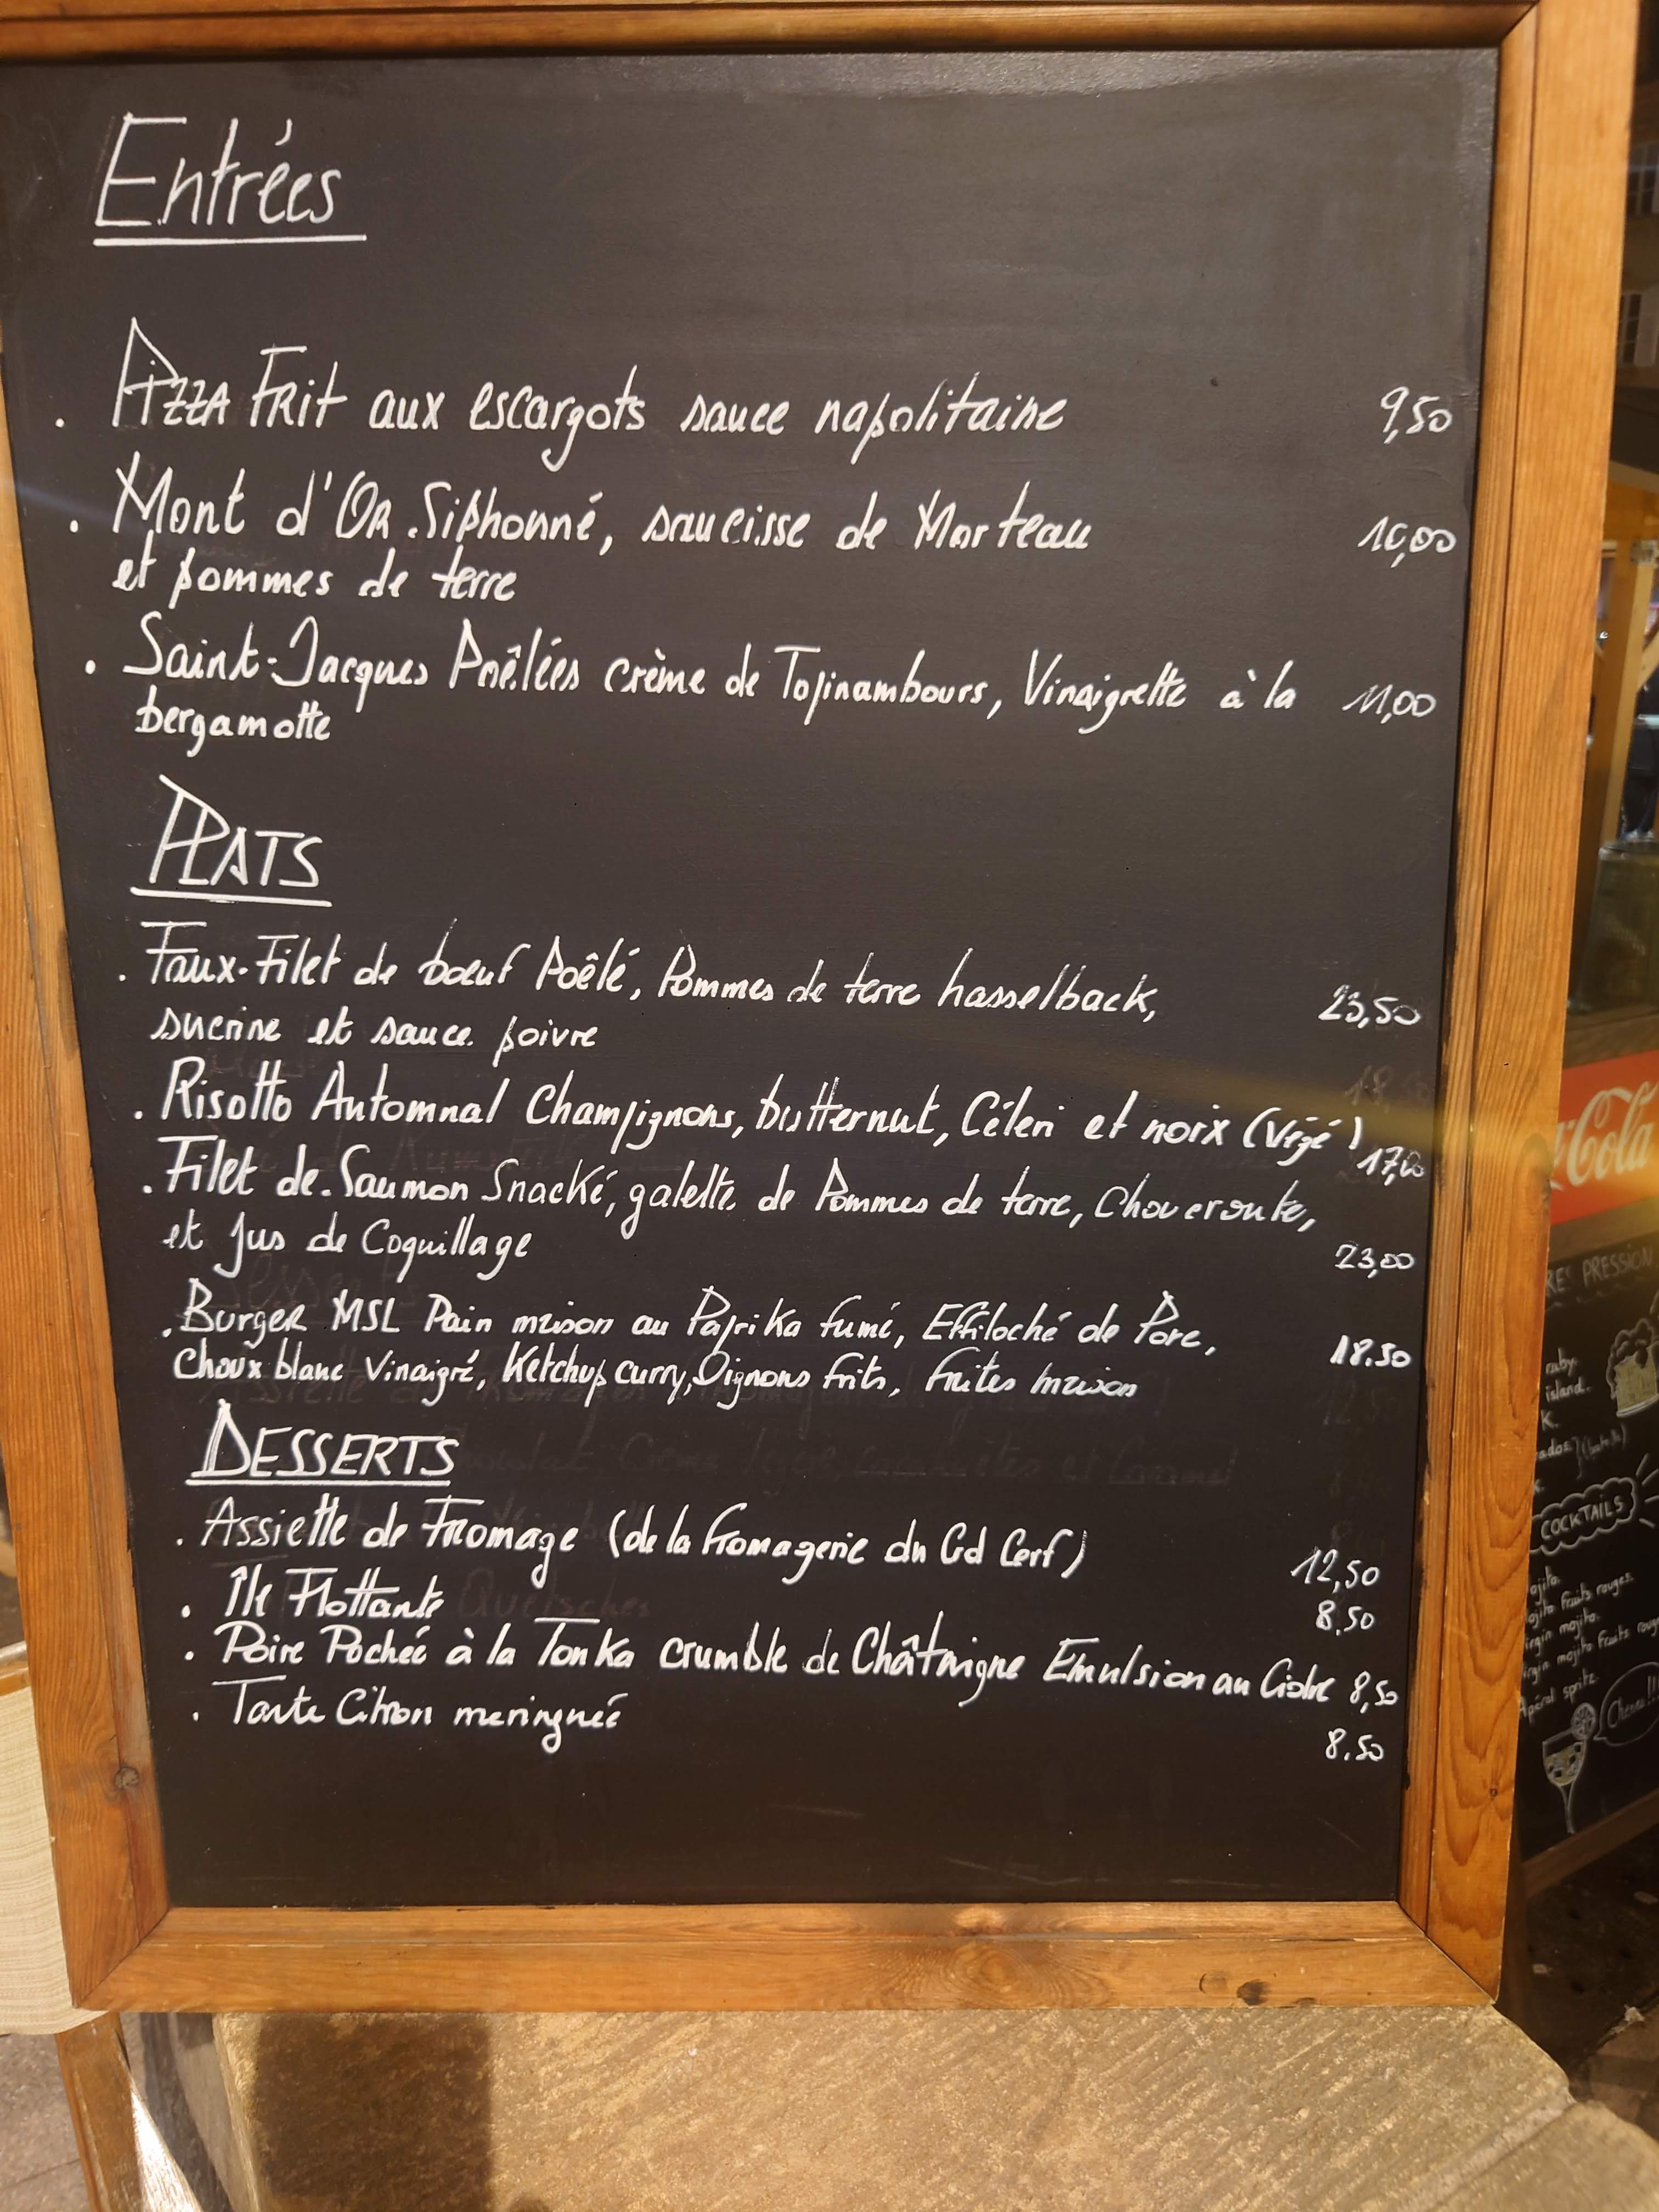 Entrées
. Pizza Frit aux escargots sauce napolitaine 9,50
. Mont d'Or Siphonné, saucisse de Morteau 10,00
et pommes de terre
. Saint-Jacques Poêlées crème de Topinambours, Vinaigrette à la 11,00
bergamotte
PLATS
. Faux-Filet de boeuf Poêlé, Pommes de terre hasselback, 23,50
sucrine et sauce poivre
. Risotto Automnal Champignons, butternut, Céleri et noix (Végé) 17,00
. Filet de Saumon Snacké, galette de Pommes de terre, Choucroute,
et Jus de Coquillage 23,00
. Burger MSL Pain maison au Paprika fumé, Effiloché de Porc, 18.50
Choux blanc Vinaigré, Ketchup curry, Oignons frits, frites maison
DESSERTS
. Assiette de Fromage (de la fromagerie du Gd Cerf) 12,50
. Île Flottante 8.50
. Poire Pochée à la Tonka crumble de Châtaigne Emulsion au Cidre 8,50
. Tarte Citron meringuée 8.50
Cola
PRESSION
ruby.
island.
COCKTAILS
ojito.
ojito fruits rouges.
irgin mojito.
irgin mojito fruits roug
Apérol spritz.